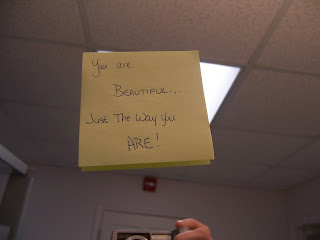 You are
BEAUTIFUL...
Just The Way You
ARE!